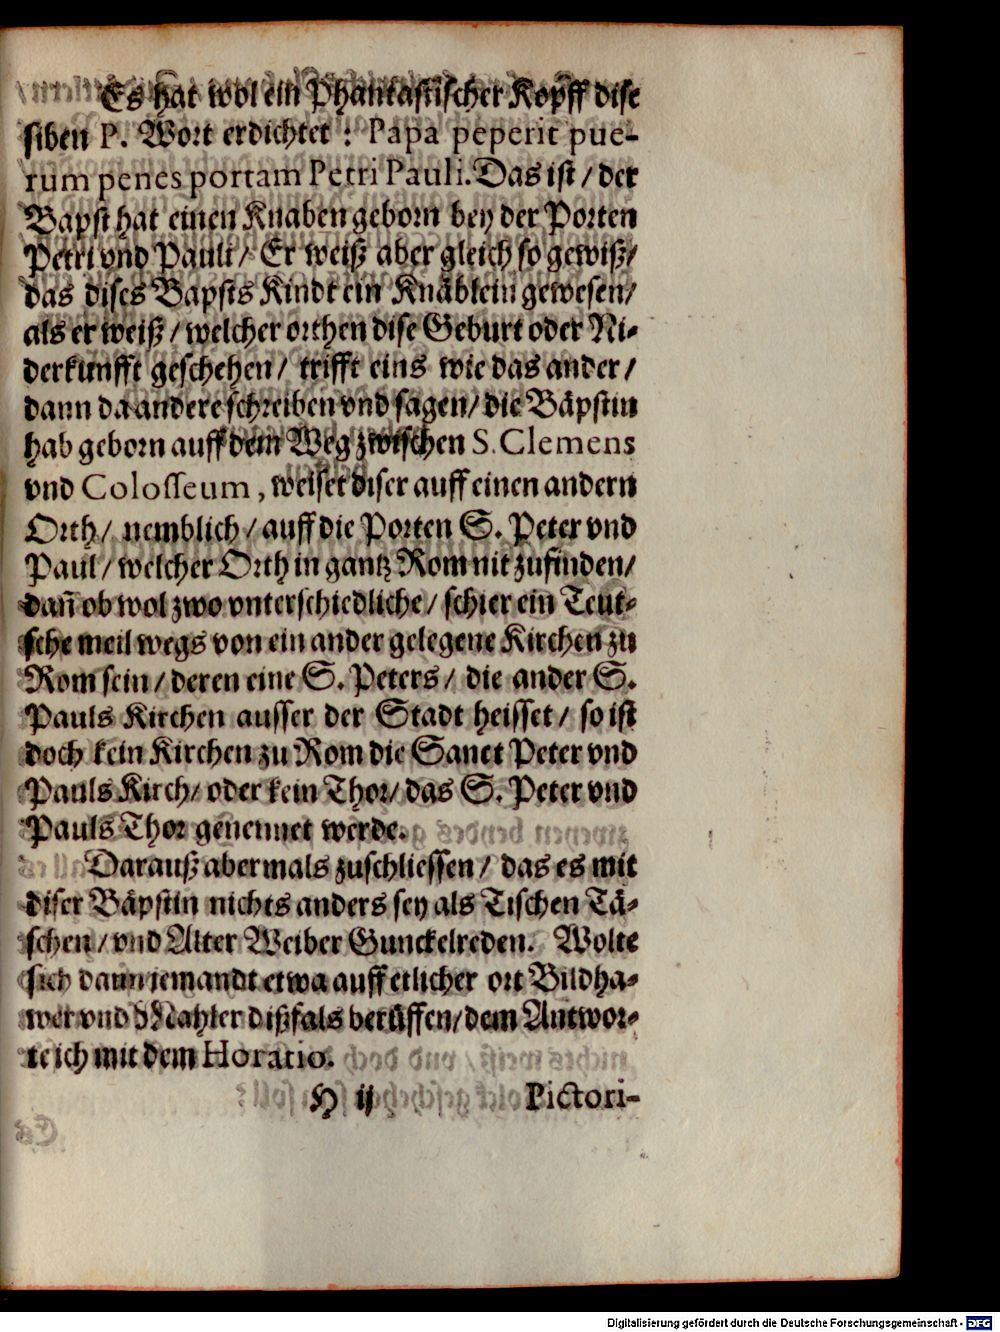 Es hat wol ein Phantastischer Kopff dise
siben P. Wort erdichtet : Papa peperit pue-
rum penes portam Petri Pauli. Das ist / der
Bapst hat einen Knaben geborn bey der Porten
Petri vnd Pauli / Er weiß aber gleich so gewiß /
das dises Bapsts Kindt ein Knäblein gewesen /
als er weiß / welcher orthen dise Geburt oder Ni-
derkunfft geschehen / trifft eins wie das ander /
dann da andere schreiben vnd sagen / die Bäpstin
hab geborn auff dem Weg zwischen S. Clemens
vnd Colosseum , weiset diser auff einen andern
Orth / nemblich / auff die Porten S. Peter vnd
Paul / welcher Orth in gantz Rom nit zufinden /
dañ ob wol zwo vnterschiedliche / schier ein Teut-
sche meil wegs von ein ander gelegene Kirchen zu
Rom sein / deren eine S. Peters / die ander S.
Pauls Kirchen ausser der Stadt heisset / so ist
doch kein Kirchen zu Rom die Sanct Peter vnd
Pauls Kirch / oder kein Thor / das S. Peter vnd
Pauls Thor genennet werde.
Darauß abermals zuschliessen / das es mit
diser Bäpstin nichts anders sey als Tischen Tä-
schen / vnd Alter Weiber Gunckelreden. Wolte
sich dann jemandt etwa auff etlicher ort Bildha-
wer vnd Mahler dißfals berüffen / dem Antwor-
te ich mit dem Horatio.
H ij Pictori-
Digitalisierung gefördert durch die Deutsche Forschungsgemeinschaft - DFG